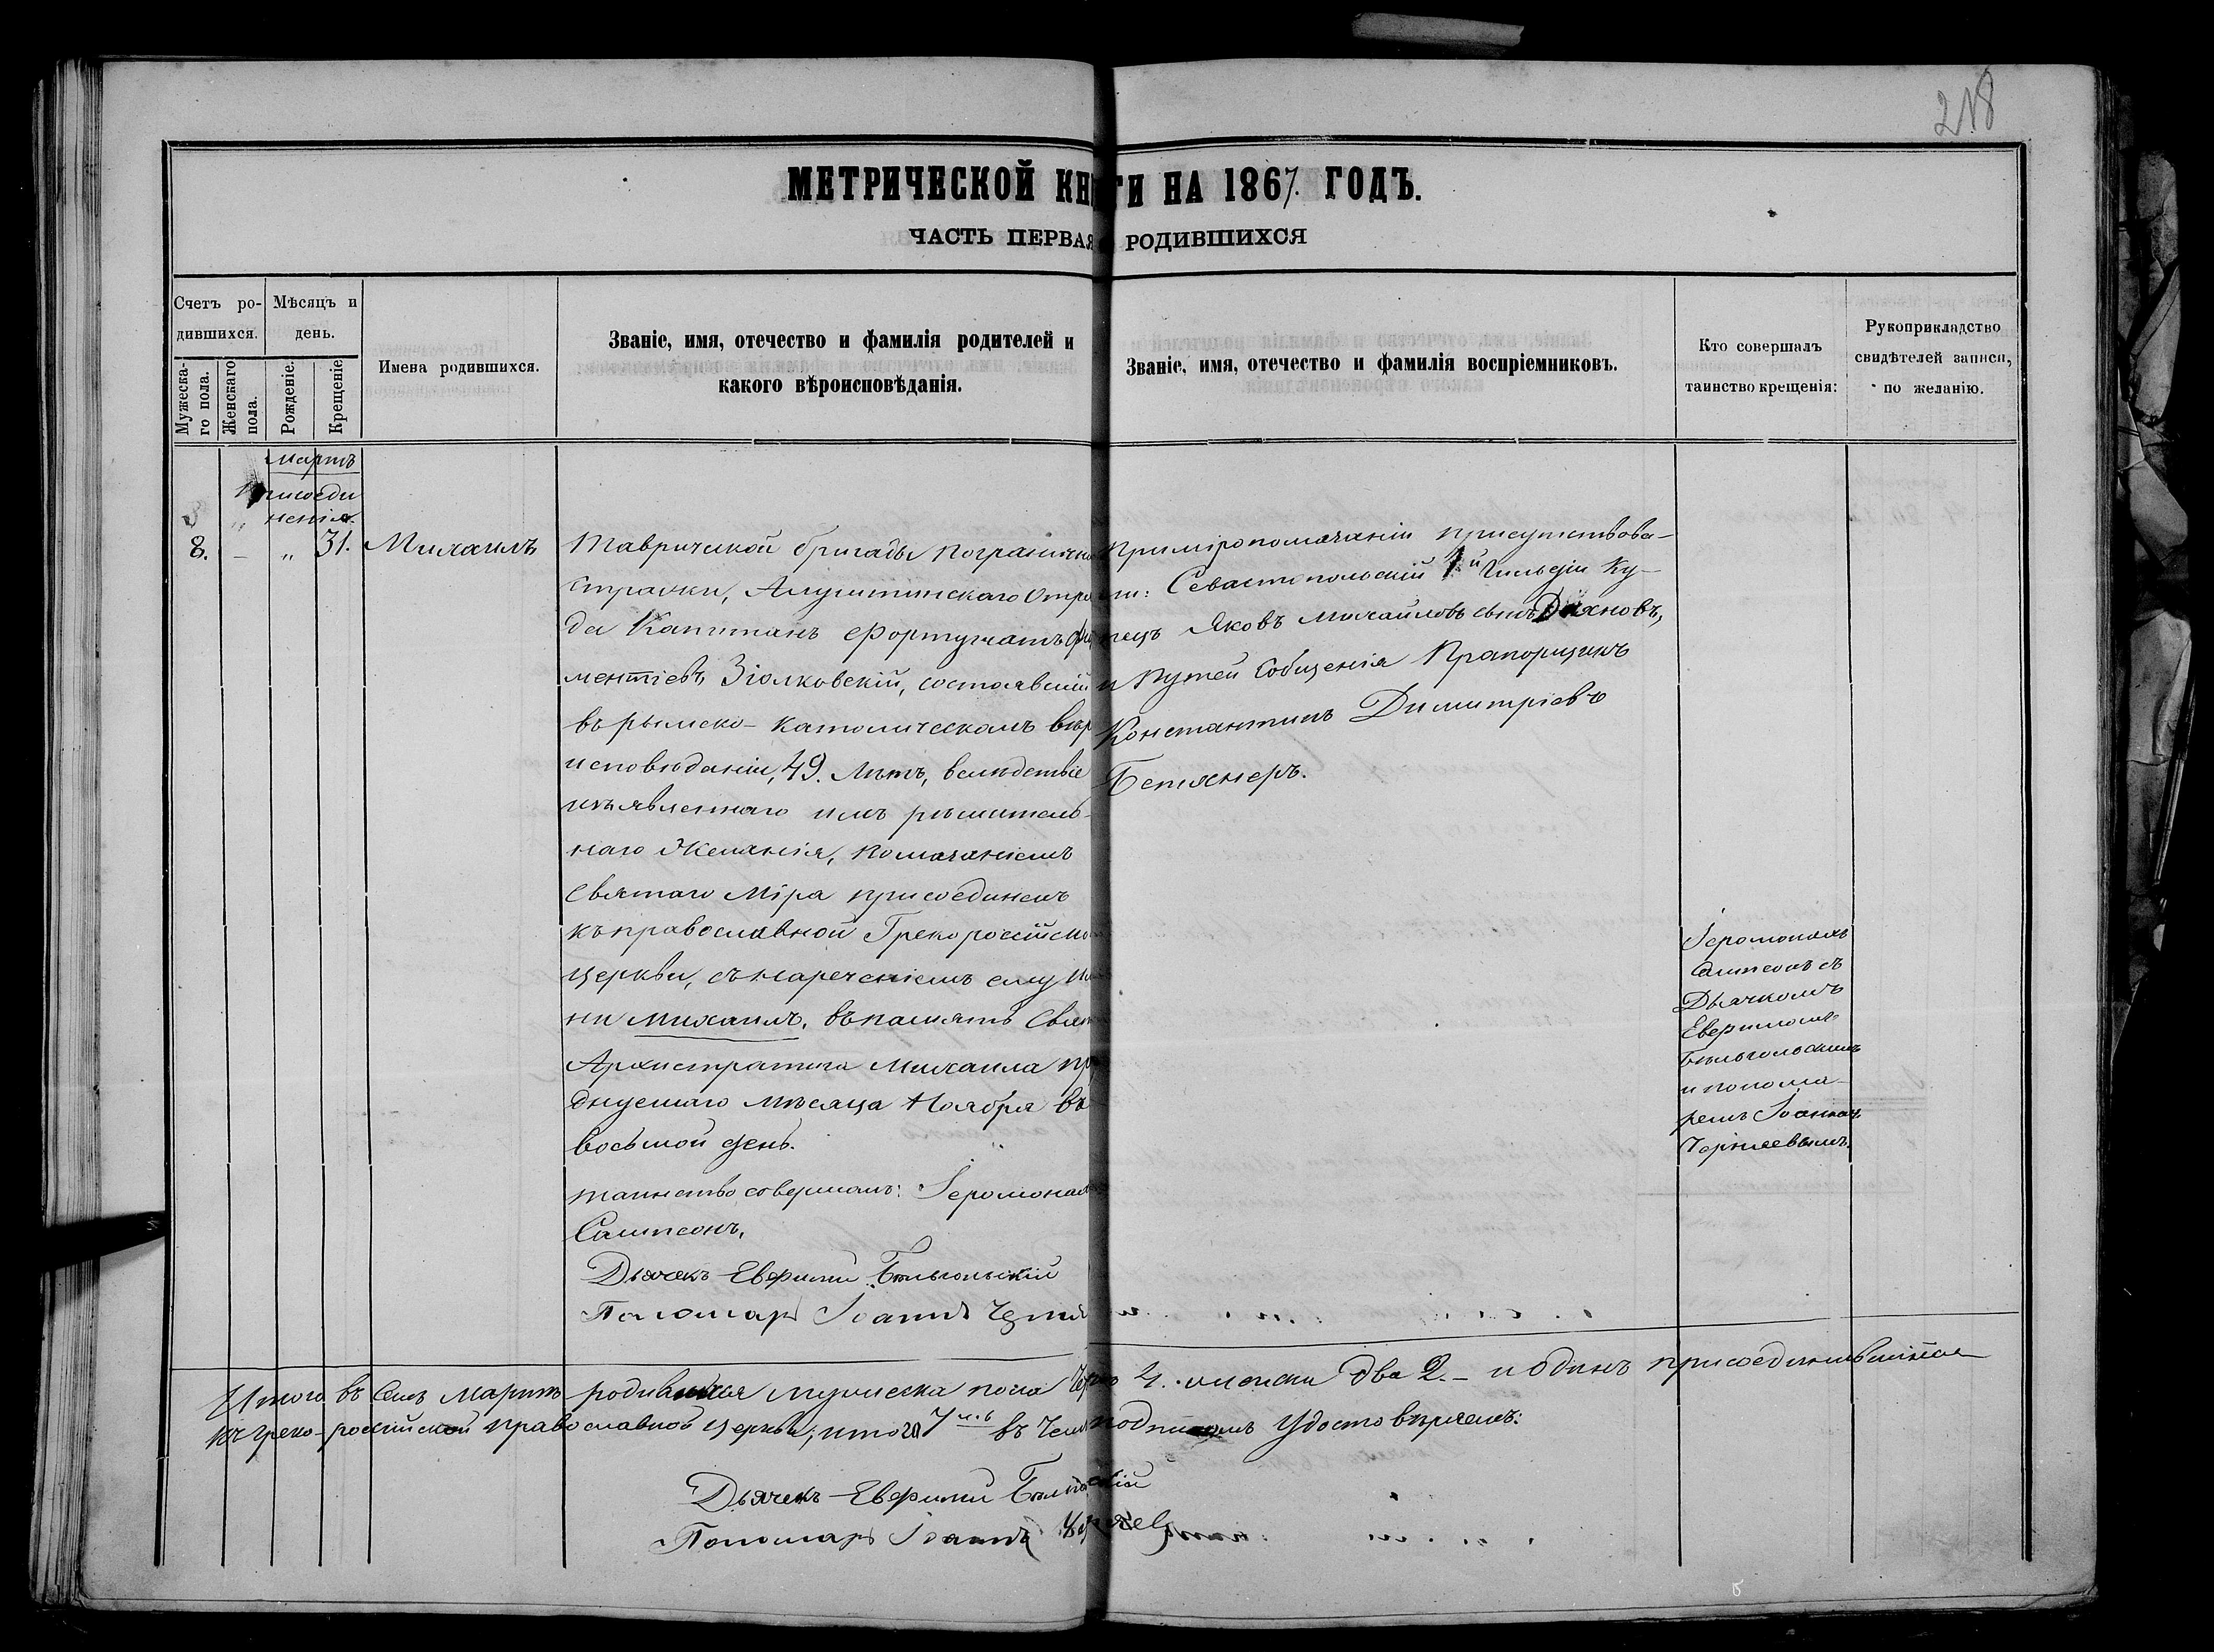 218
МЕТРИЧЕСКОЙ КНИГИ НА 1867. ГОДЪ.
ЧАСТЬ ПЕРВАЯ РОДИВШИХСЯ
Счетъ ро-
дившихся.
Мужеска-
го пола.
Женскаго
пола.
Мѣсяцъ и
день.
Рожденіе.
Крещеніе
Имена родившихся.
Званіе, имя, отечество и фамилія родителей и
какого вѣроисповѣданія.
Званіе, имя, отечество и фамилія воспріемниковъ.
Кто совершалъ
таинство крещенія:
Рукоприкладство
свидѣтелей записи,
по желанію.
Мартъ
Присоеди
ненія.
8. — „ 31. Михаилъ
Таврической бригады погранично
стражи, Алуштинскаго Отря
да Капитанъ Фортунатъ
ментіевъ Зіолковскій, состоявшій
въ рымско-католическомъ вѣр
исповѣданіи, 49. лѣтъ, вслѣдствіе
изъявленнаго имъ рѣшитель-
наго желанія, помазаніемъ
Святаго Мѵра присоединенъ
къ православной Грекороссійско
церкви, съ нареченіемъ ему
ни Михаилъ, въ память Свят
Архистратига Михаила пр
днуемаго мѣсяца Ноября въ
восьмой день.
таинство совершалъ: Іеромонах
Сампсонъ,
Дьячекъ Евфимій
Пономарь Іоаннъ
При мѵропомазаніи присутствова-
ли: Севастопольскій 1й Гильдіи Ку-
пецъ Яковъ Михайловъ сынъ Дахновъ,
и Путей Сообщенія Прапорщикъ
Константинъ Димитріевъ
Іеромонахъ
Сампсонъ съ
Дьячкомъ
Евфиміемъ
и понома-
ремъ Іоанном
Черняевымъ.
Итого въ семъ Мартѣ родившихся мужеска пола 4. женска два 2. — и одинъ присоединившійся
къ греко-россійской православной церкви; итого 7мь въ чемъ подписомъ удостовѣряемъ:
Дьячекъ Евфимій
Пономарь Іоаннъ Черняев